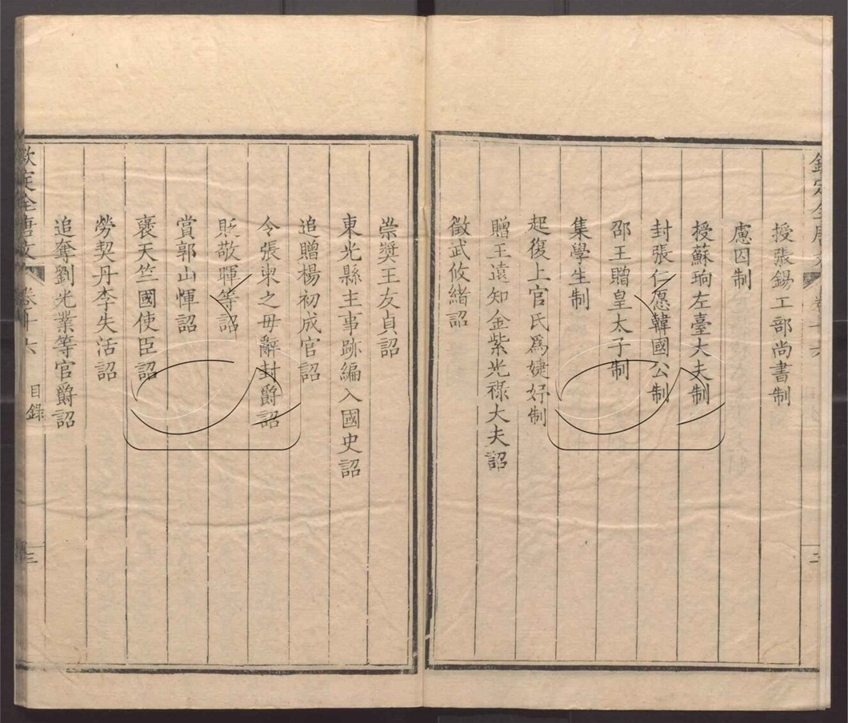 授張錫工部尚書制
慮囚制
授蘇珦左臺大夫制
封張仁愿韓國公制
邵王贈皇太子制
集學生制
起復上官氏爲婕妤制
贈王遠知金紫光祿大夫詔
徵武攸緒詔
崇奬王友貞詔
東光縣主事跡編入國史詔
追贈楊初成官詔
令張柬之毋辭封爵詔
貶敬暉等詔
賞郭山惲詔
褒天竺國使臣詔
勞契丹李失活詔
追奪劉光業等官爵詔
欽定全唐文 卷十六 目錄 三